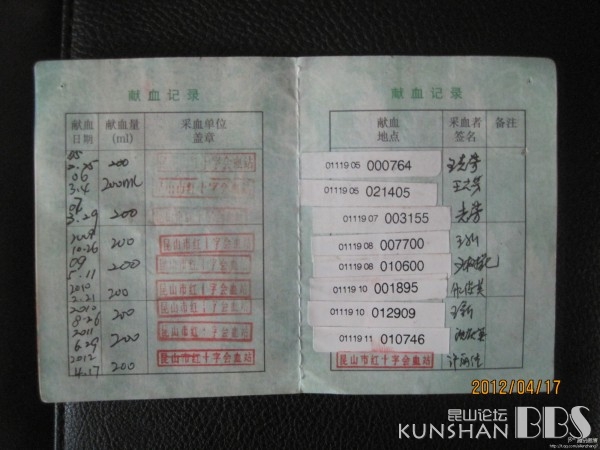 献血记录
献血日期 献血量(ml) 采血单位盖章
05 2.25 200 昆山市红十字会血站
06 3.4 200ml 昆山市红十字会血站
07 3.29 200
2008 10.26 200 昆山市红十字会血站
09 5.11 200 昆山市红十字会血站
2010 2.21 200 昆山市红十字会血站
2010 8.26 200 昆山市红十字会血站
2011 6.29 200 昆山市红十字会血站
2012 4.17 200 昆山市红十字会血站
献血记录
献血地点 采血者签名 备注
01119 05 000764
01119 06 021405
01119 07 003155
01119 08 007700
01119 08 010600
01119 10 001895
01119 10 012909
01119 11 010746
昆山市红十字会血站
2012/04/17
昆山论坛
KUNSHAN BBS